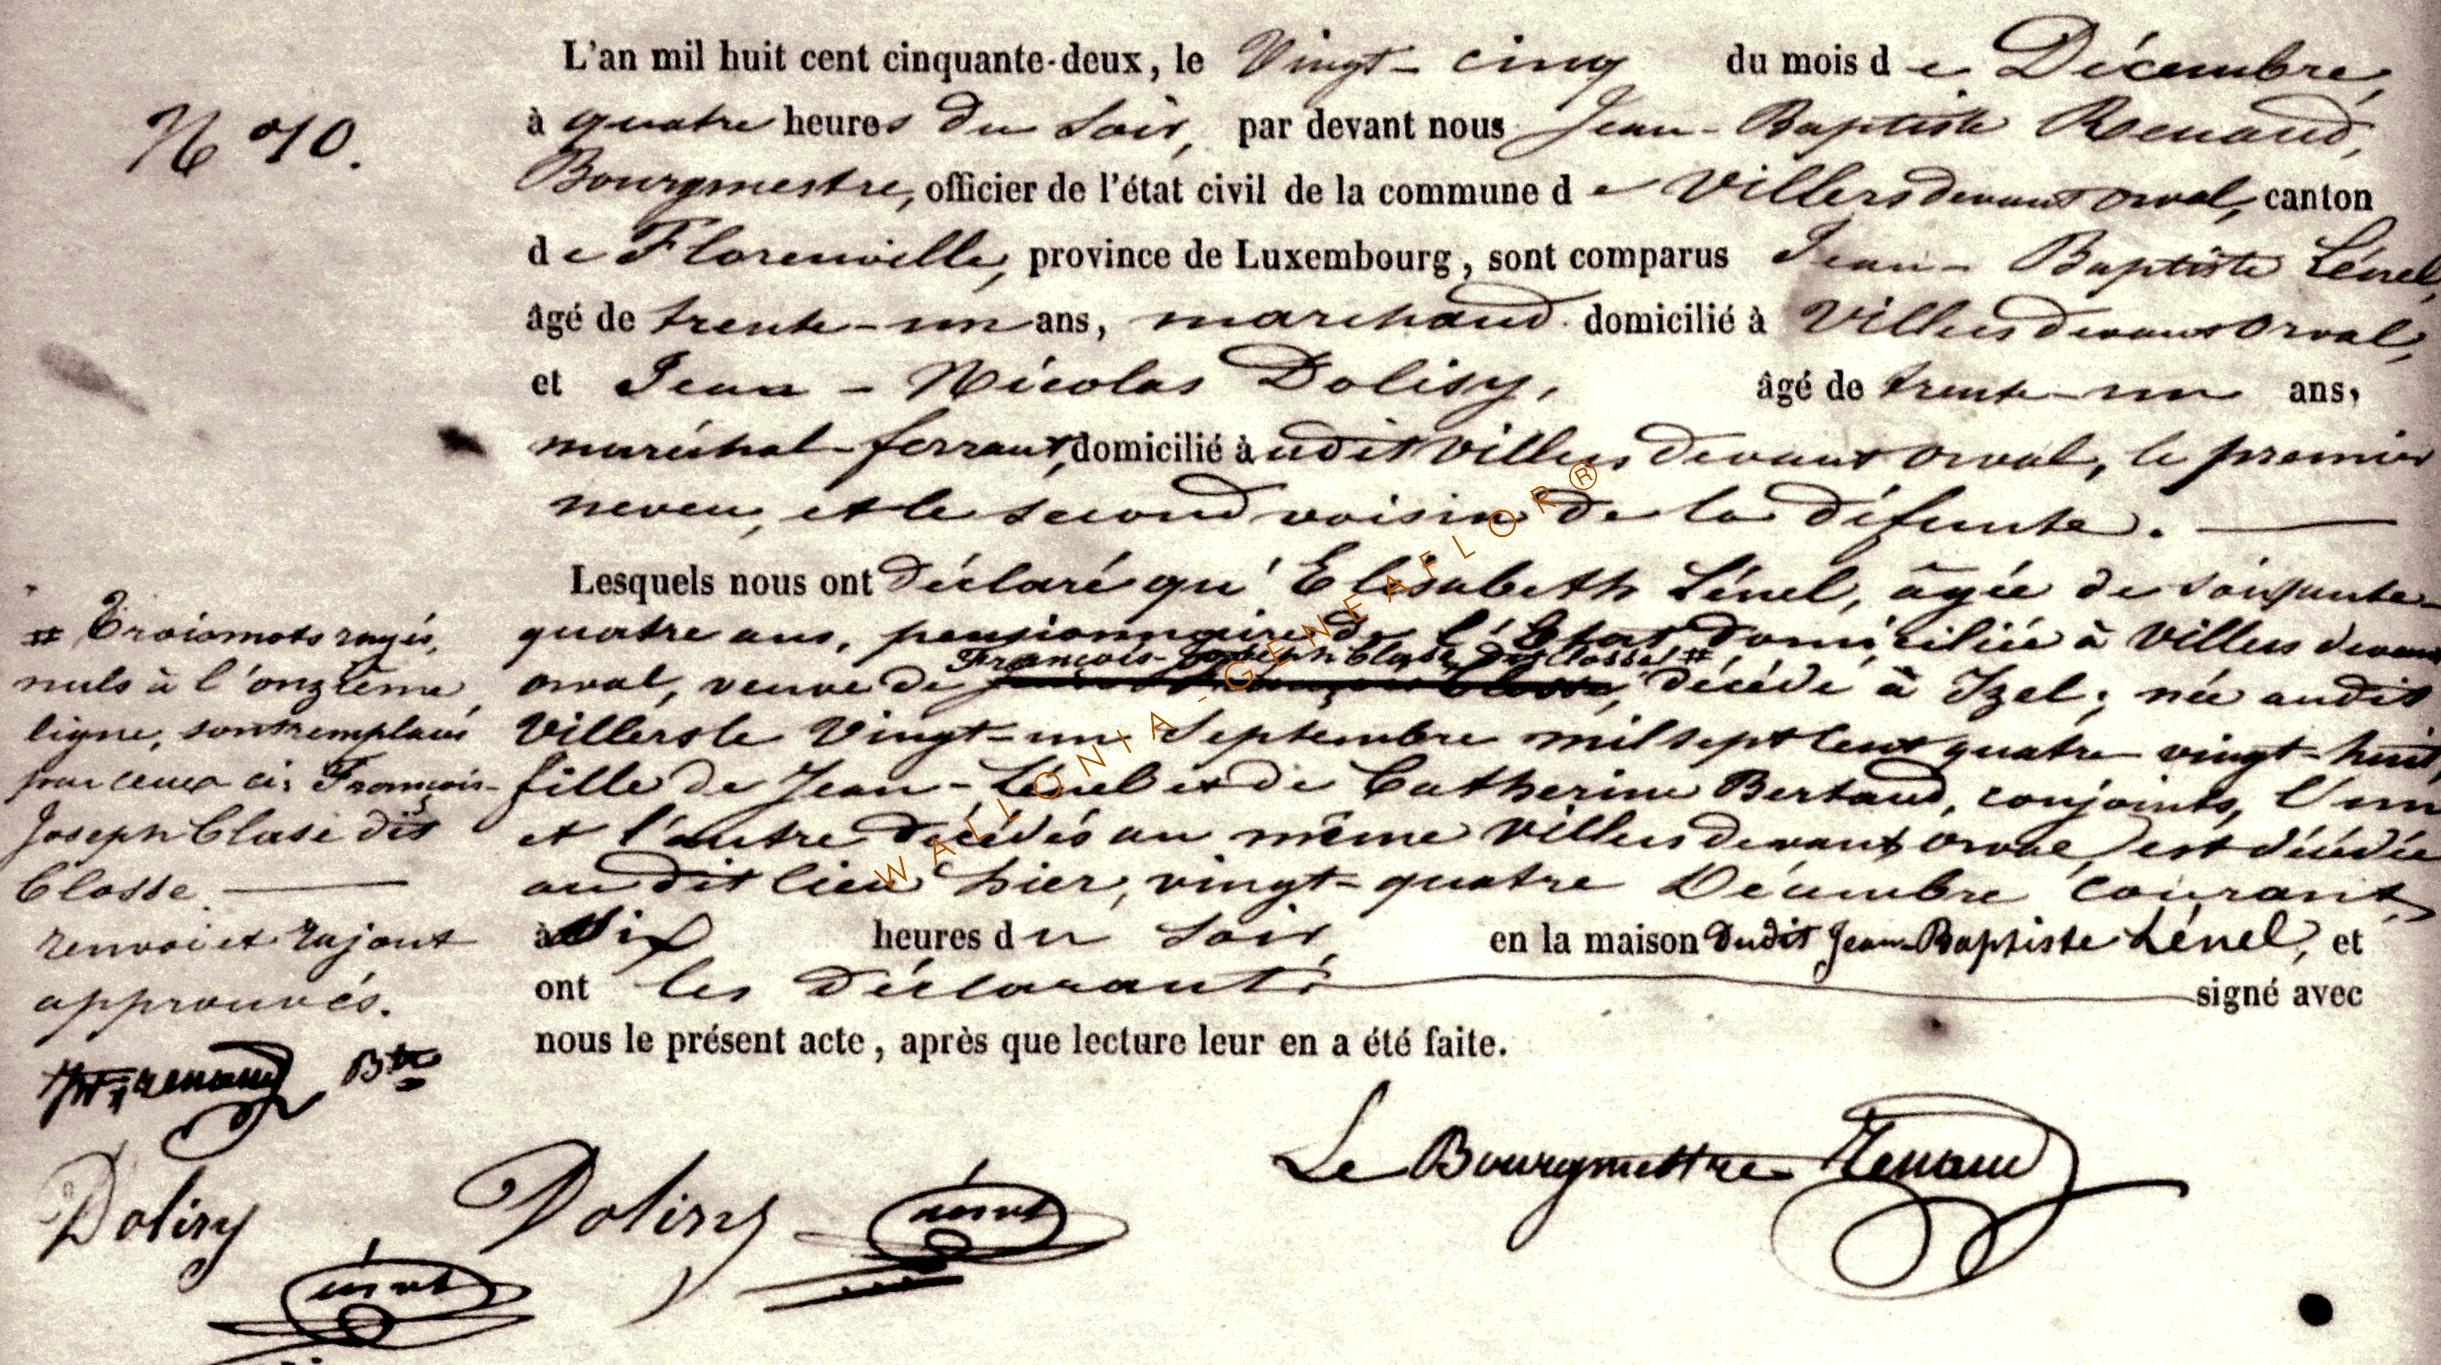 L'an mil huit cent cinquante-deux, le Vingt-cinq du mois de Décembre,
N° 10. à quatre heures du Soir, par devant nous Jean-Baptiste Renaud,
Bourgmestre, officier de l'état civil de la commune de Villers devant orval, canton
de Florenville, province de Luxembourg, sont comparus Jean-Baptiste Lénel,
âgé de trente-un ans, marchand domicilié à Villers devant Orval,
et Jean-Nicolas Dolisy, âgé de trente-un ans,
maréchal-ferrant, domicilié audit Villers devant orval, le premier
neveu, et le second voisin de la défunte.
Lesquels nous ont déclaré qu'Elisabeth Lénel, âgée de soixante-
quatre ans, pensionnaire de l'Etat domiciliée à Villers devant
François-Joseph Classe dit Closse #
orval, veuve de décédé à Izel; née audit
Villers le Vingt-un Septembre mil sept cent quatre vingt-huit,
fille de Jean-Lénel et de Catherine Bertaud, conjoints, l'un
et l'autre décédés au même Villers devant orval, est décédée
au dit lieu hier, vingt-quatre Décembre courant,
à six heures du soir, en la maison dudit Jean-Baptiste Lénel, et
ont les déclarants signé avec
nous le présent acte, après que lecture leur en a été faite.
# Trois mots rayés,
nuls à l'onzième
ligne, sont remplacés
par ceux ci: François-
Joseph Classe dit
Closse
renvoi et rajout
approuvés.
Renaud Btre
Dolisy
Lénel
Dolisy Lénel
Le Bourgmestre Renaud
WALLONIA-GENEAFLOR®